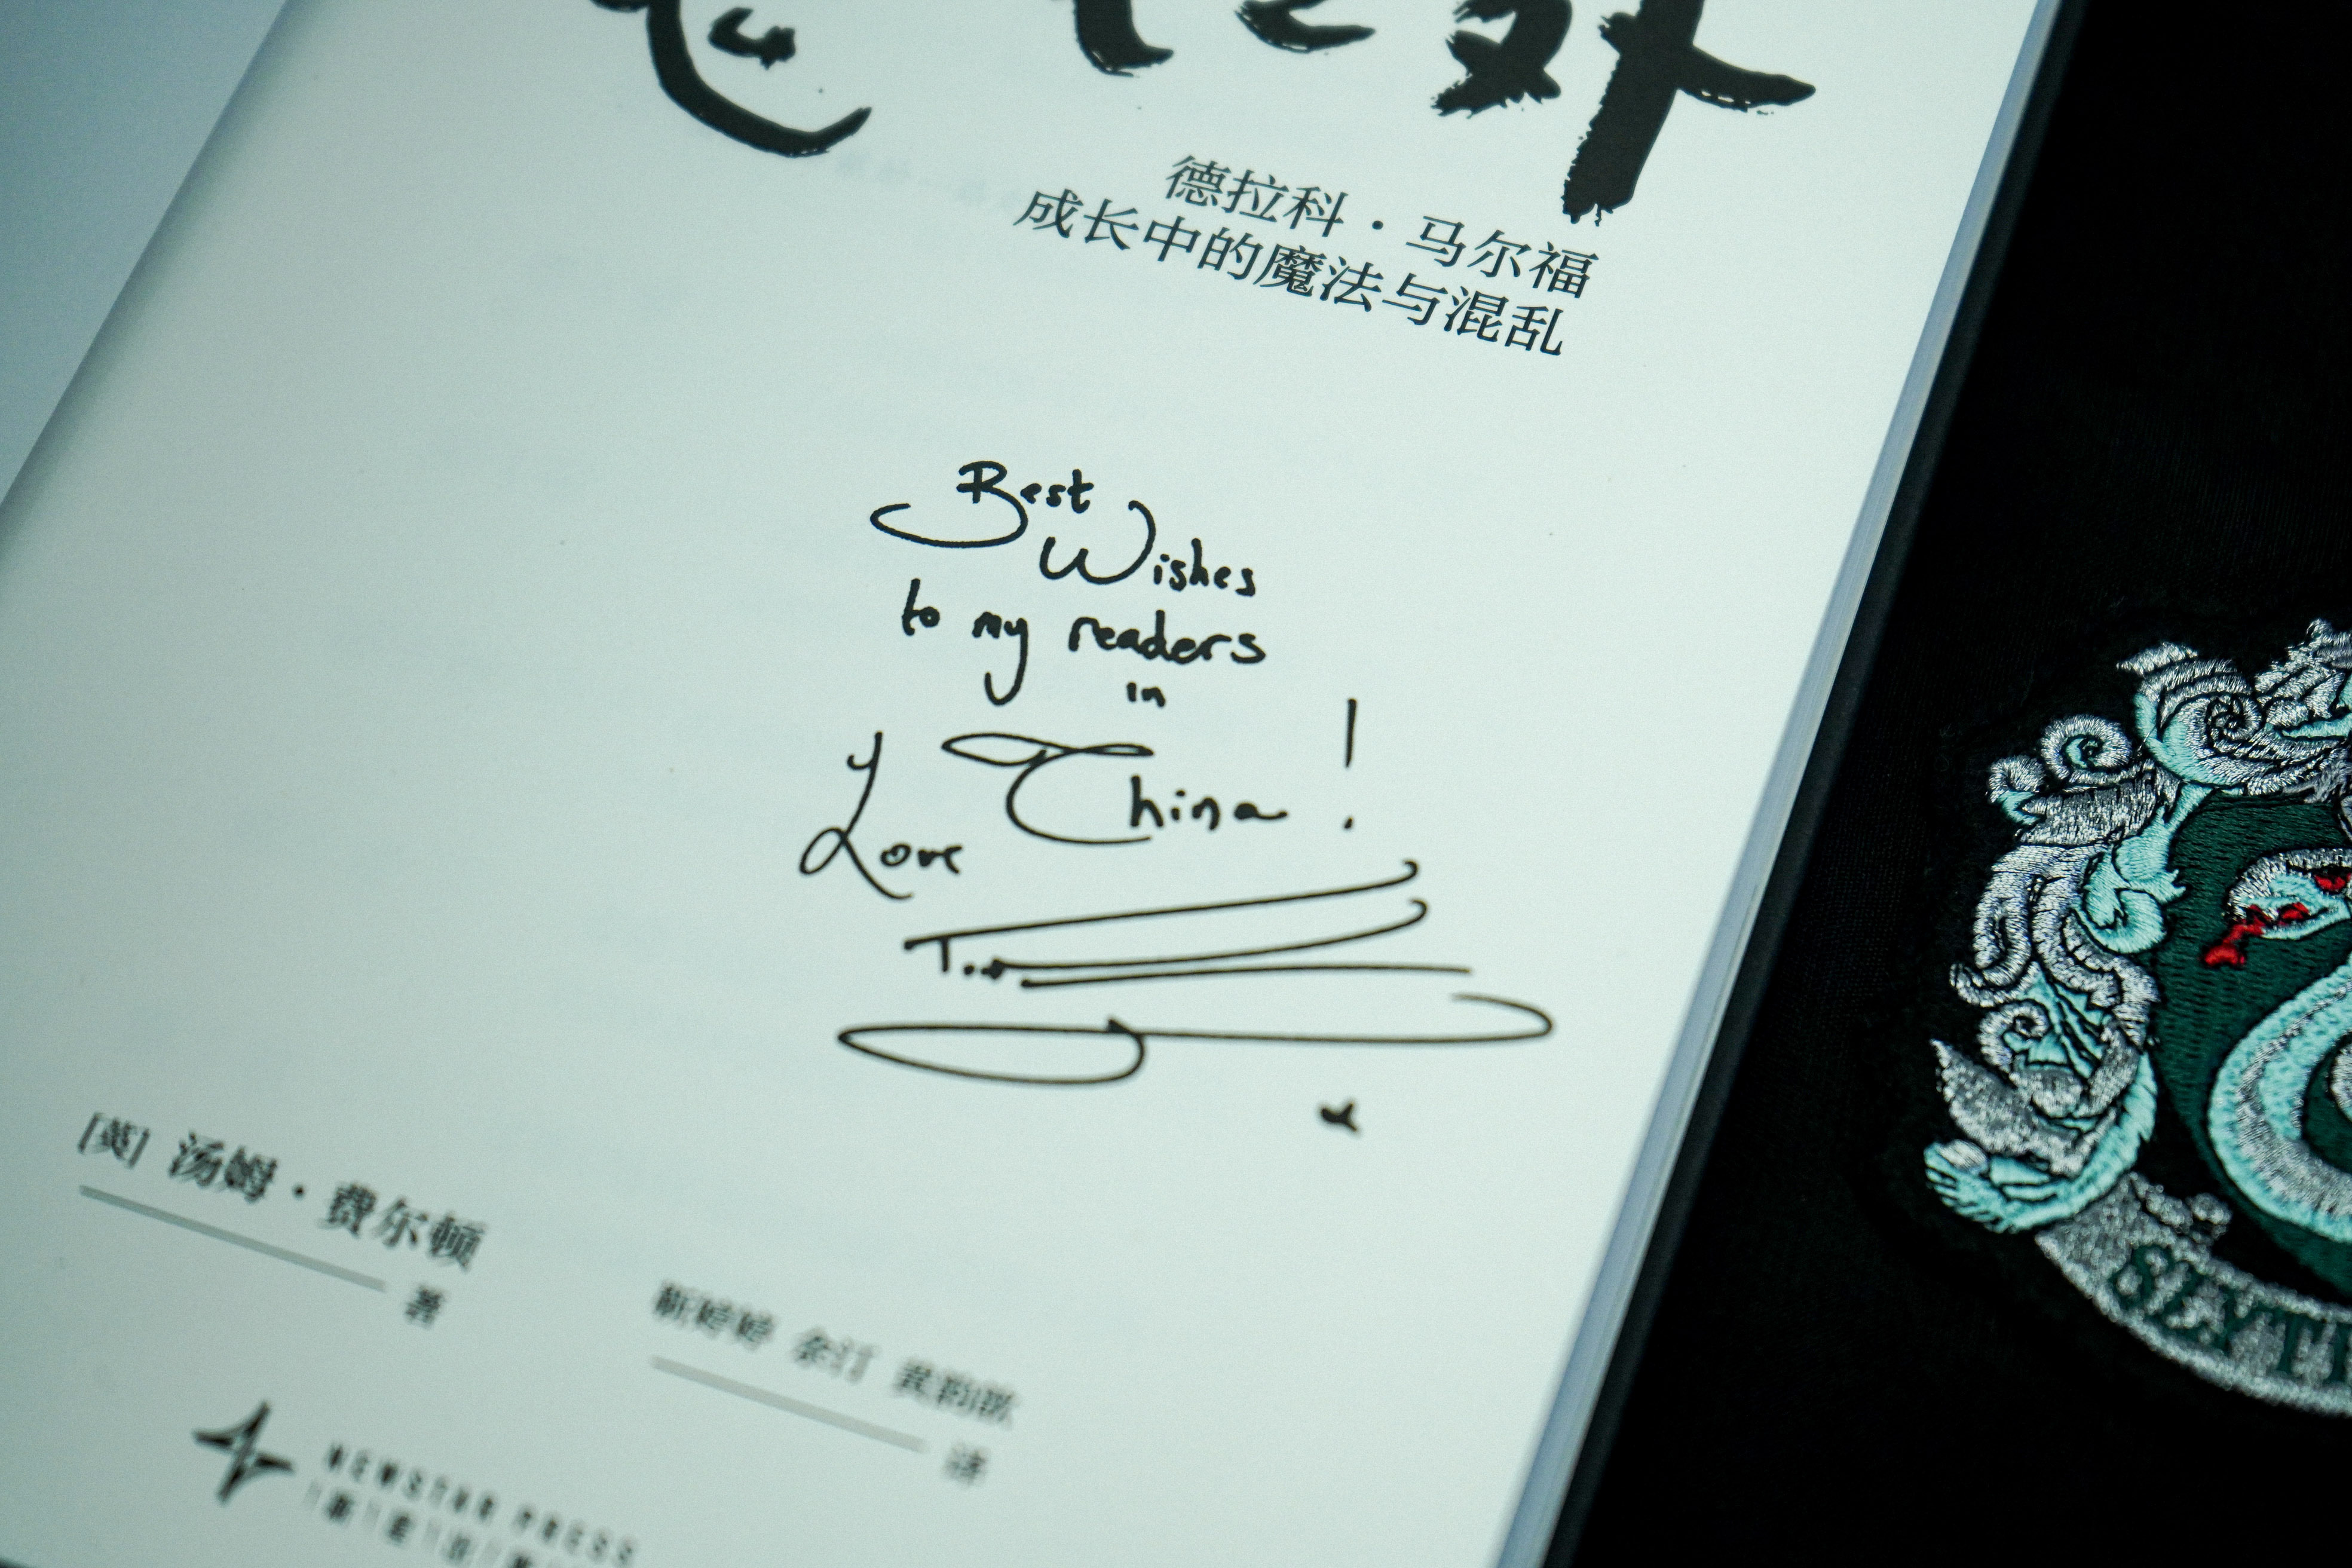 外
德拉科·马尔福
成长中的魔法与混乱
Best
Wishes
to my readers
in
China !
Love
Tom
x
[英] 汤姆·费尔顿
著
靳婷婷 余汀
译
NEWSTAR PRESS
新星出版
SLYTH